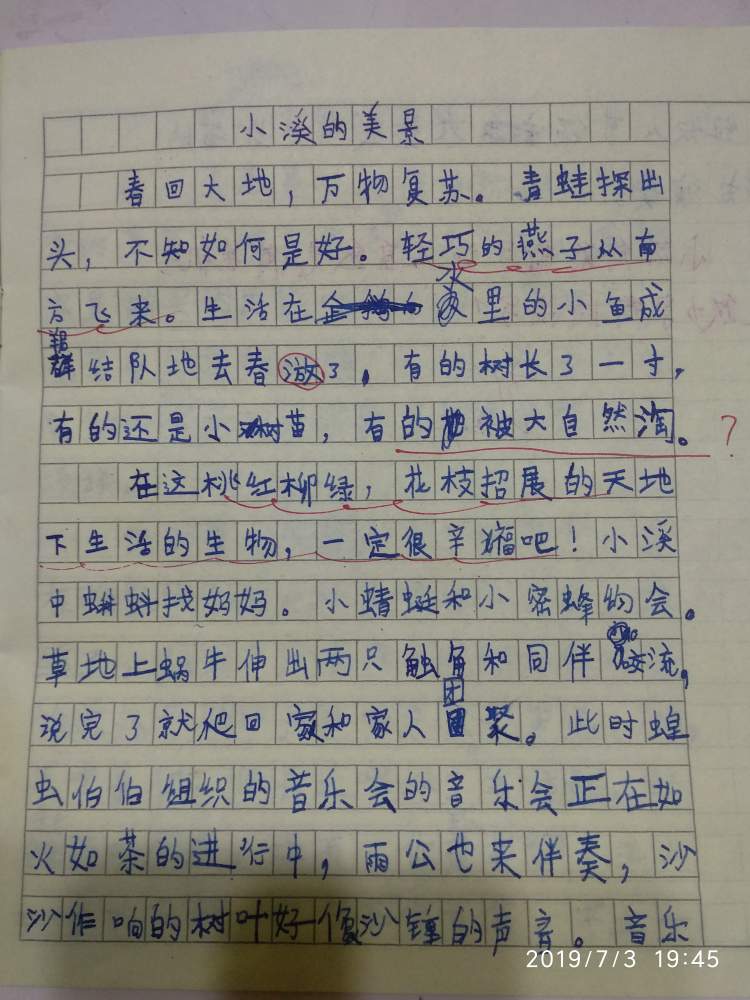 小溪的美景
春回大地，万物复苏。青蛙探出
头，不知如何是好。轻巧的燕子从南
方飞来。生活在水家里的小鱼成
群结队地去春游了，有的树长了一寸，
有的还是小树苗，有的被大自然淘。？
在这桃红柳绿，花枝招展的天地
下生活的生物，一定很幸福吧！小溪
中蝌蚪找妈妈。小蜻蜓和小密蜂约会。
草地上蜗牛伸出两只触角和同伴交流，
说完了就爬回家和家人团聚。此时蝗
虫伯伯组织的音乐会的音乐会正在如
火如荼的进行中，雨公也来伴奏，沙
沙作响的树叶好像沙锤的声音。音乐
2019/7/3 19:45